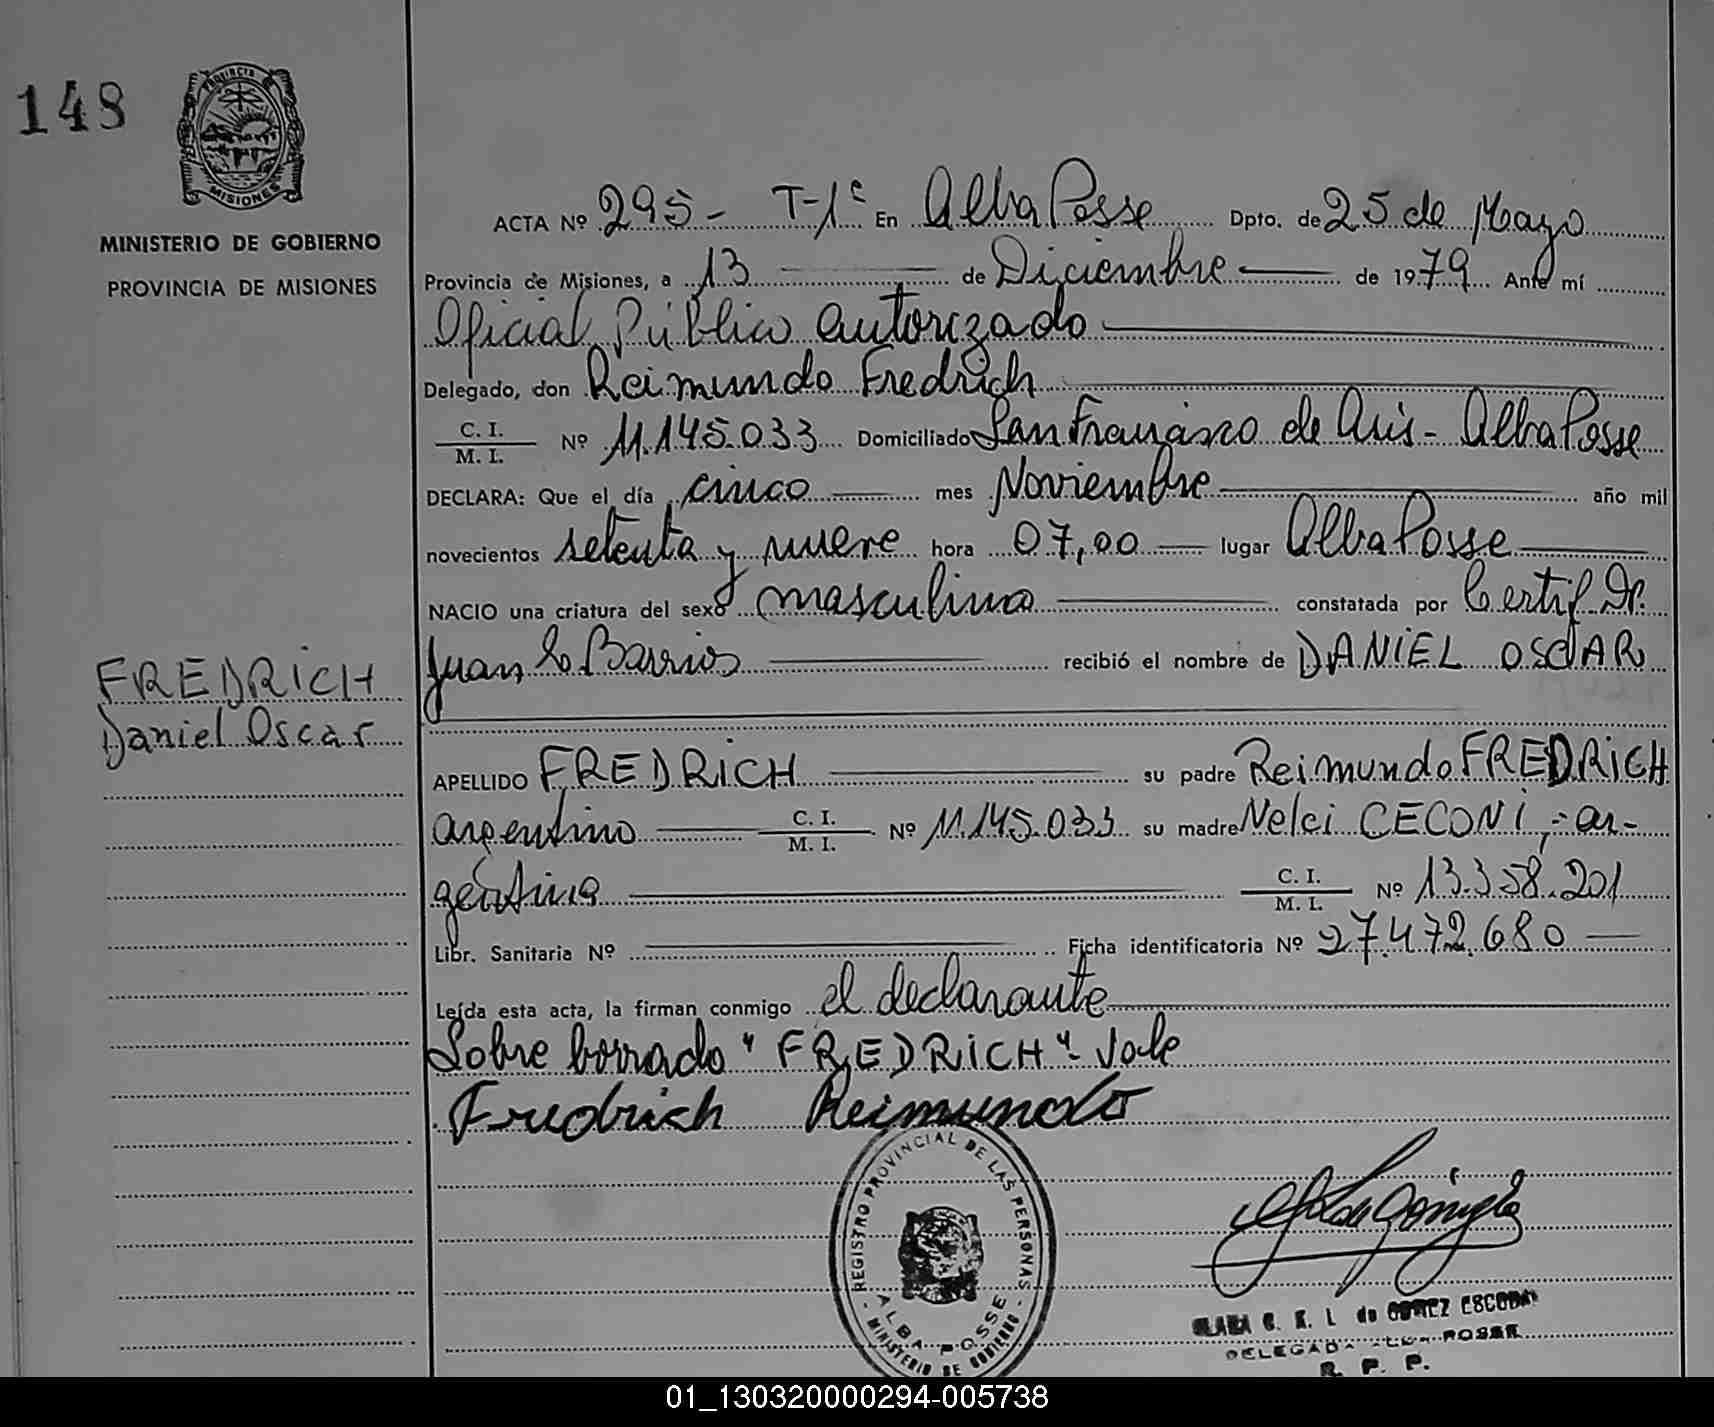 148
PROVINCIA DE MISIONES
MINISTERIO DE GOBIERNO
PROVINCIA DE MISIONES
FREDRICH
Daniel Oscar
ACTA Nº 295- T-1º En Alba Posse Dpto. de 25 de Mayo
Provincia de Misiones, a 13 de Diciembre de 1979 Ante mí
Oficial Público autorizado
Delegado, don Reimundo Fredrich
C. I.
M. I. Nº 11.145.033 Domiciliado San Francisco de Asis - Alba Posse
DECLARA: Que el día cinco mes Noviembre año mil
novecientos setenta y nueve hora 07,00 lugar Alba Posse
NACIO una criatura del sexo masculino constatada por Certif Dr.
Juan Barrios recibió el nombre de DANIEL OSCAR
APELLIDO FREDRICH su padre Reimundo FREDRICH
argentino C. I. M. I. Nº 11.145.033 su madre Nelci CECONI,- ar-
gentina C. I. M. I. Nº 13.358.201
Libr. Sanitaria Nº Ficha identificatoria Nº 27.472.680
Leída esta acta, la firman conmigo el declarante
Sobre borrado "FREDRICH" - Vale
Fredrich Reimundo
REGISTRO PROVINCIAL DE LAS PERSONAS
ALBA POSSE
MINISTERIO DE GOBIERNO
de GOMEZ ESCOBAR
DELEGADA POSSE
R. P. P.
01_130320000294-005738